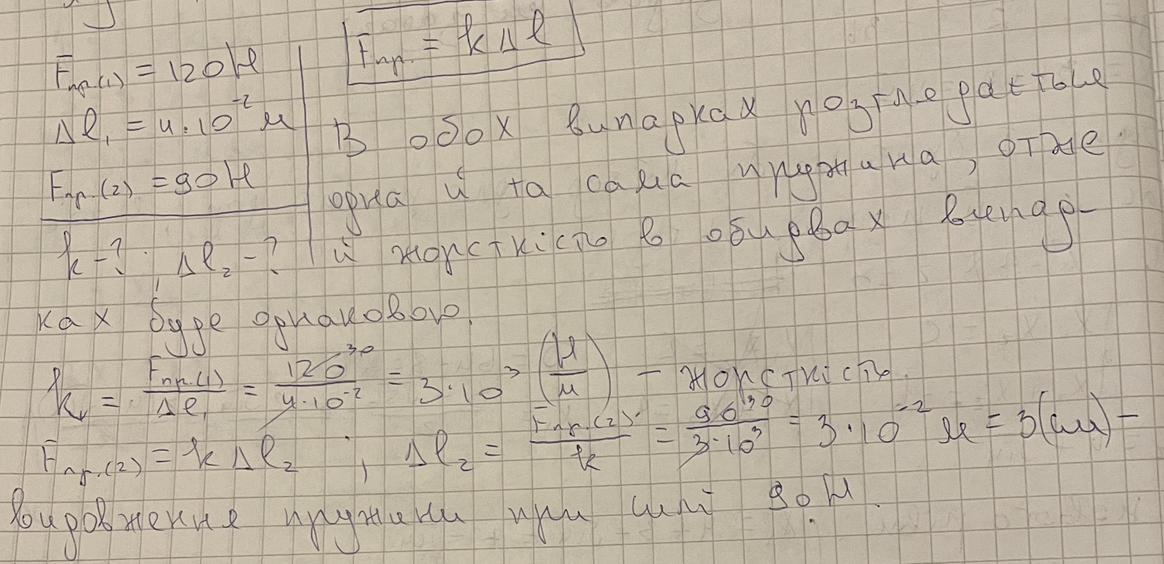 Fпр.(1) = 120 Н
Fпр. = k Δl
Δl₁ = 4·10⁻² м
В обох випадках розглядається
Fпр.(2) = 90 Н
одна й та сама пружина, отже
k - ? ; Δl₂ - ?
й жорсткість в обидвах випад-
ках буде однаковою.
k₁ = Fпр.(1) / Δl₁ = 120 ³⁰ / 4·10⁻² = 3·10³ (Н/м) - жорсткість.
Fпр.(2) = k Δl₂ ; Δl₂ = Fпр.(2) / k = 90 ³⁰ / 3·10³ = 3·10⁻² м = 3 (см) -
видовження пружини при силі 90 Н.